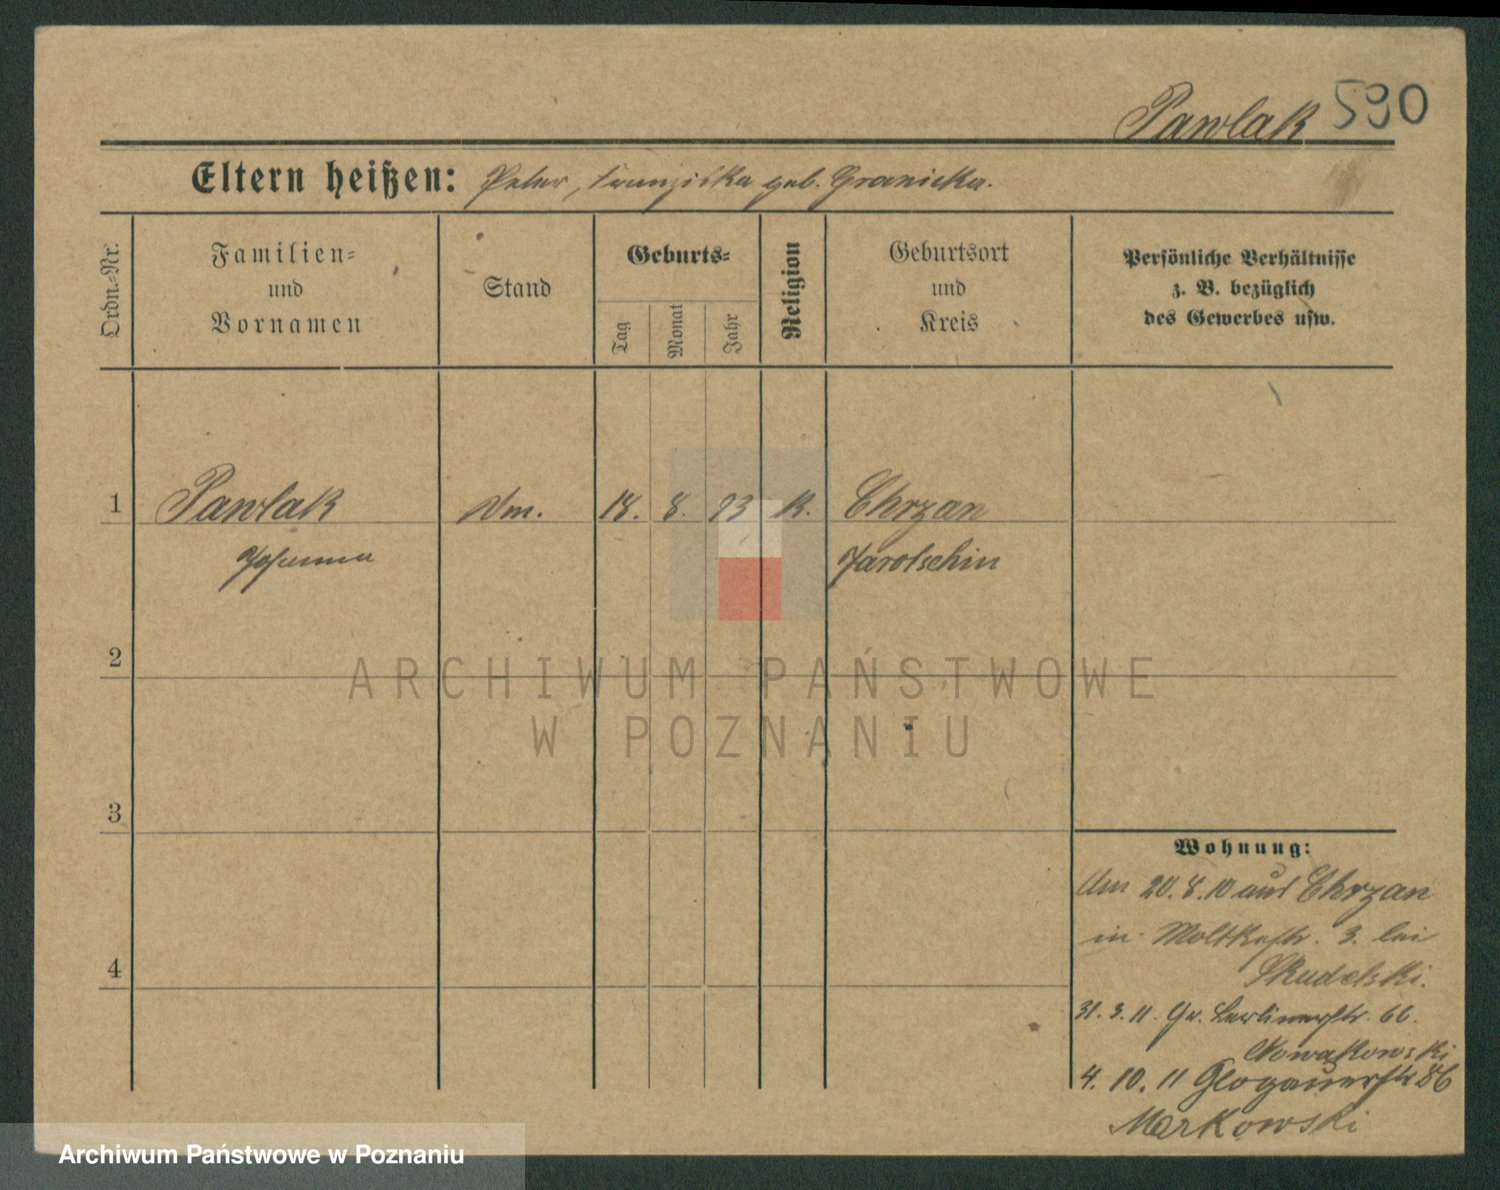 Pawlak 590
Eltern heißen: Peter, Franziska geb. Granicka.
Ordn.-Nr.
Familien-
und
Vornamen
Stand
Geburts-
Tag
Monat
Jahr
Religion
Geburtsort
und
Kreis
Persönliche Verhältnisse
z. B. bezüglich
des Gewerbes usw.
1 Pawlak Dm. 18. 8. 93 K. Chrzan
Johanna Jarotschin
2
ARCHIWUM PAŃSTWOWE
W POZNANIU
3
Wohnung:
Am 20.8.10 aus Chrzan
in Moltkestr. 3. bei
Skudelski.
31.3.11. Gr. Berlinerstr. 66.
Nowakowski
4
4. 10. 11 Glogauerstr 86
Markowski
Archiwum Państwowe w Poznaniu